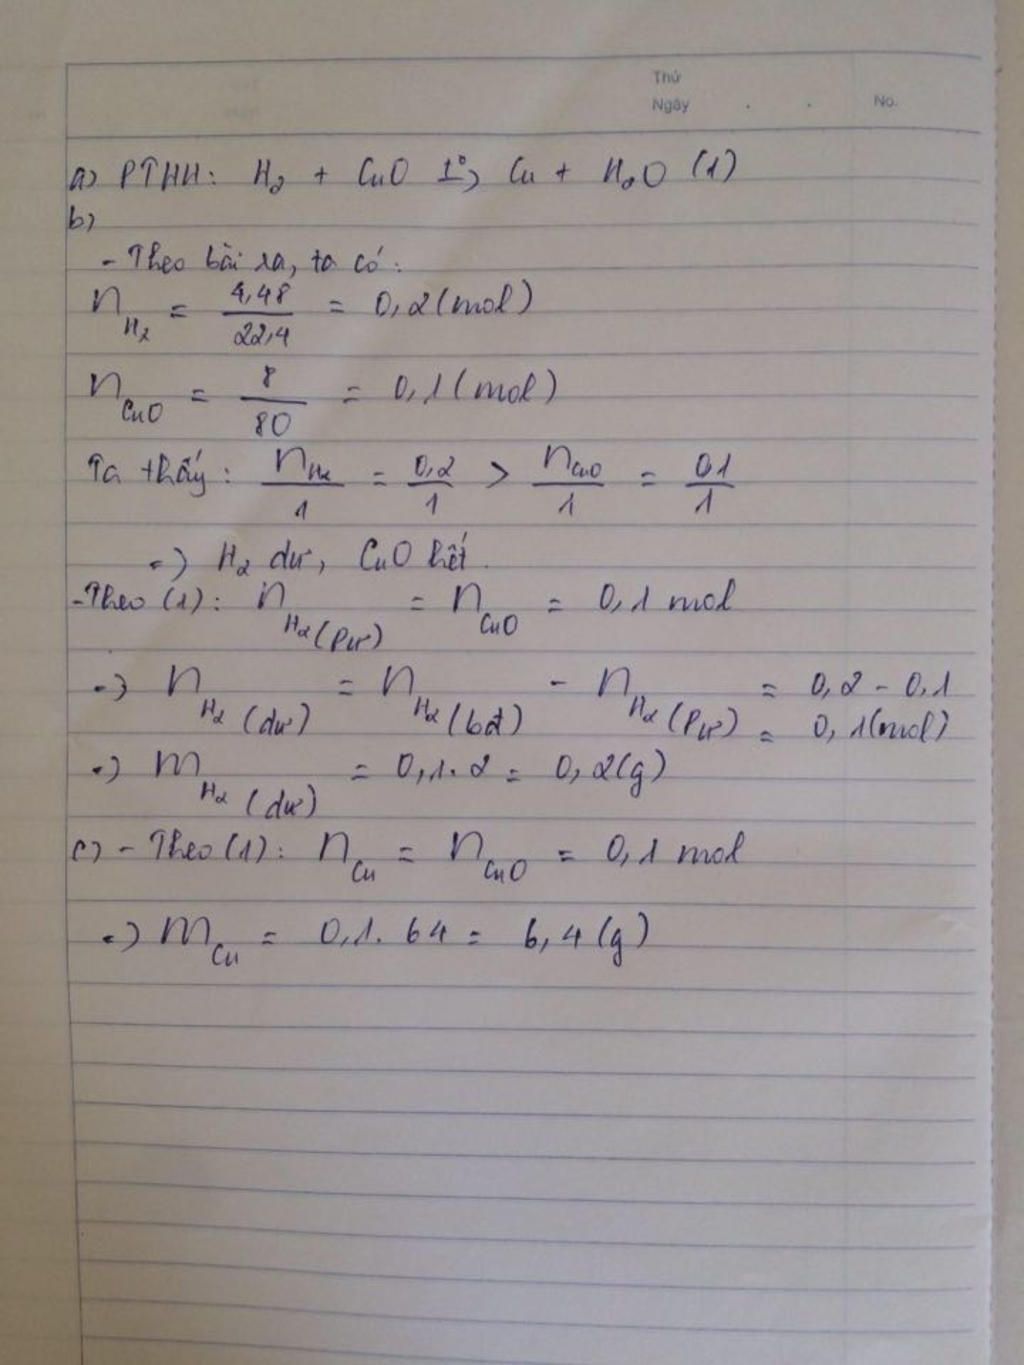 Thứ
Ngày . . No.
a) PTHH: H₂ + CuO t°→ Cu + H₂O (1)
b)
- Theo bài ra, ta có:
n_H₂ = 4,48/22,4 = 0,2 (mol)
n_CuO = 8/80 = 0,1 (mol)
Ta thấy: n_H₂/1 = 0,2/1 > n_CuO/1 = 0,1/1
=> H₂ dư, CuO hết.
- Theo (1): n_H₂(pư) = n_CuO = 0,1 mol
=> n_H₂(dư) = n_H₂(bđ) - n_H₂(pư) = 0,2 - 0,1
= 0,1 (mol)
=> m_H₂(dư) = 0,1. 2 = 0,2 (g)
c) - Theo (1): n_Cu = n_CuO = 0,1 mol
=> m_Cu = 0,1. 64 = 6,4 (g)